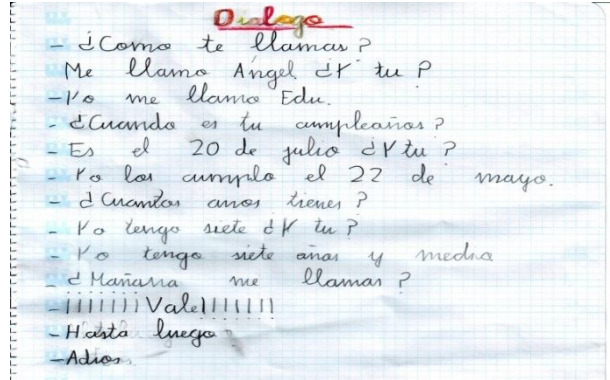 Dialogo
- ¿Como te llamas?
Me llamo Angel ¿Y tu?
- Yo me llamo Edu.
- ¿Cuando es tu cumpleaños?
- Es el 20 de julio ¿Y tu?
- Yo los cumplo el 22 de mayo.
- ¿Cuantos anos tienes?
- Yo tengo siete ¿Y tu?
- Yo tengo siete años y media
- ¿Mañana me llamas?
- ¡¡¡¡¡¡¡Vale!!!!!!!
- Hasta luego
- Adios.